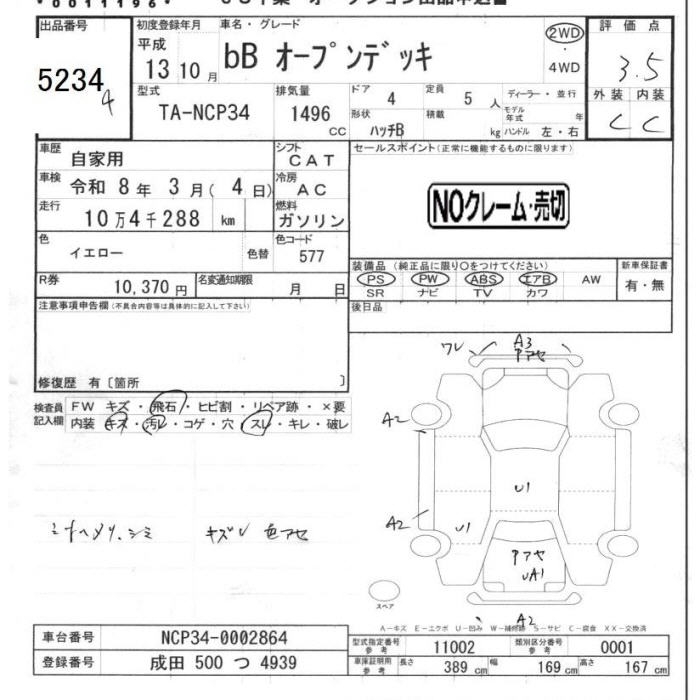 *0011196*
出品番号
5234
4
初度登録年月
平成
13 10 月
車名・グレード
bB オープンデッキ
2WD
・
4WD
評価点
3.5
外装 内装
C C
型式
TA-NCP34
排気量
1496
CC
ドア
4
定員
5 人
ディーラー・並行
形状
ハッチB
積載
kg
モデル年式 年
ハンドル 左・右
車歴
自家用
シフト
CAT
車検
令和 8 年 3 月( 4 日)
冷房
AC
走行
10 万 4 千 288 km
燃料
ガソリン
色
イエロー
色替
色コード
577
R券
10,370 円
名変通知期限
月 日
セールスポイント(正常に機能するものに限ります)
NOクレーム・売切
装備品 (純正品に限り○をつけてください)
PS PW ABS エアB AW
SR ナビ TV カワ
新車保証書
有・無
後日品
注意事項申告欄(不具合内容等は具体的に記入して下さい)
修復歴 有〔箇所 〕
検査員記入欄
FW キズ・飛石・ヒビ割・リペア跡・×要
内装 キズ・汚レ・コゲ・穴・スレ・キレ・破レ
シミ キズ 色アセ
ワレ
A3
アセ
A2
A2
U1
U1
アセ
UA1
A2
スペア
A-キズ E-エクボ U-凹み W-補修跡 S-サビ C-腐食 XX-交換済
車台番号
NCP34-0002864
登録番号
成田 500 つ 4939
型式指定番号
参考
11002
類別区分番号
参考
0001
車庫証明用
参考
長さ
389 cm
幅
169 cm
高さ
167 cm